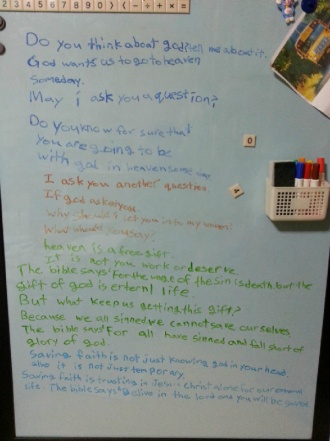 2 3 4 5 6 7 8 9 0 ) ( - ÷ + × =
Do you think about god tell me about it.
God wants us to go to heaven
Someday.
May i ask you a question?
Do you know for sure that
you are going to be
with god in heaven some
0
I ask you another question
If god ask you
why should i let you in to my heaven?
What would you say?
heaven is a free gift.
It is not you work or deserve
The bible says For the wage of the sin is death but the
gift of god is enternl life.
But what keep us getting this gift?
Because we all sinned we cannot save our selves
The bible said For all have sinned and fall short of
glory of god.
Saving faith is not just knowing god in your head,
also it is not just temporary.
Saving faith is trusting in Jesus Christ alone for our
life. The bible says in the lord and you will be saved